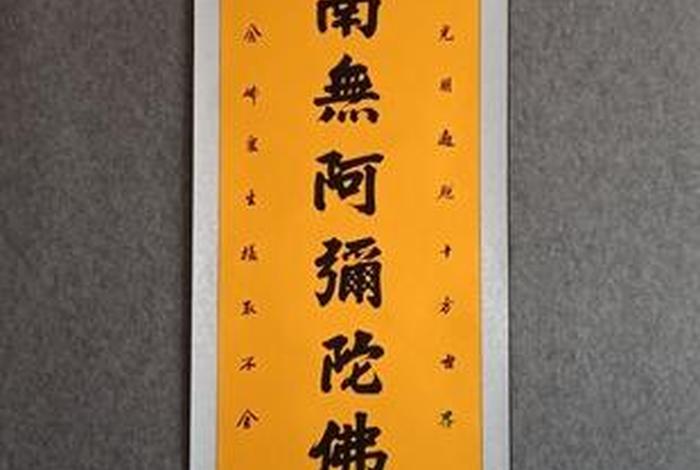 光明遍照十方世界
南無阿彌陀佛
念佛眾生攝取不舍